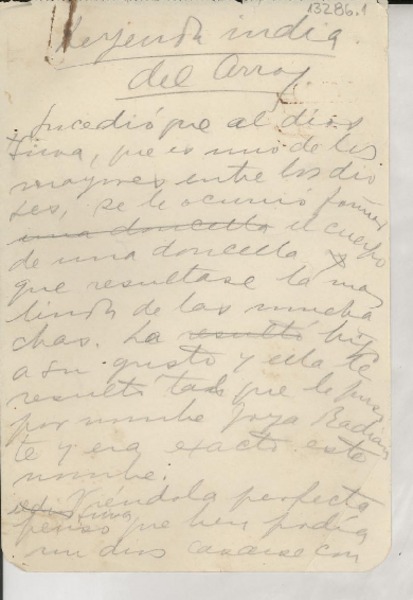 13286.1
Leyenda india
del Arroz
Sucedió que al dios
Siva, que es uno de los
mayores entre los dio
ses, se le ocurrió formar
una doncella el cuerpo
de una doncella
que resultase la mas
linda de las mucha
chas. La resultó hizo
a su gusto y ella le
resultó tal que le puso
por nombre Joya Radian
te y era exacto este
nombre.
Viéndola perfecta
Siva
penso que bien podía
un dios casarse con